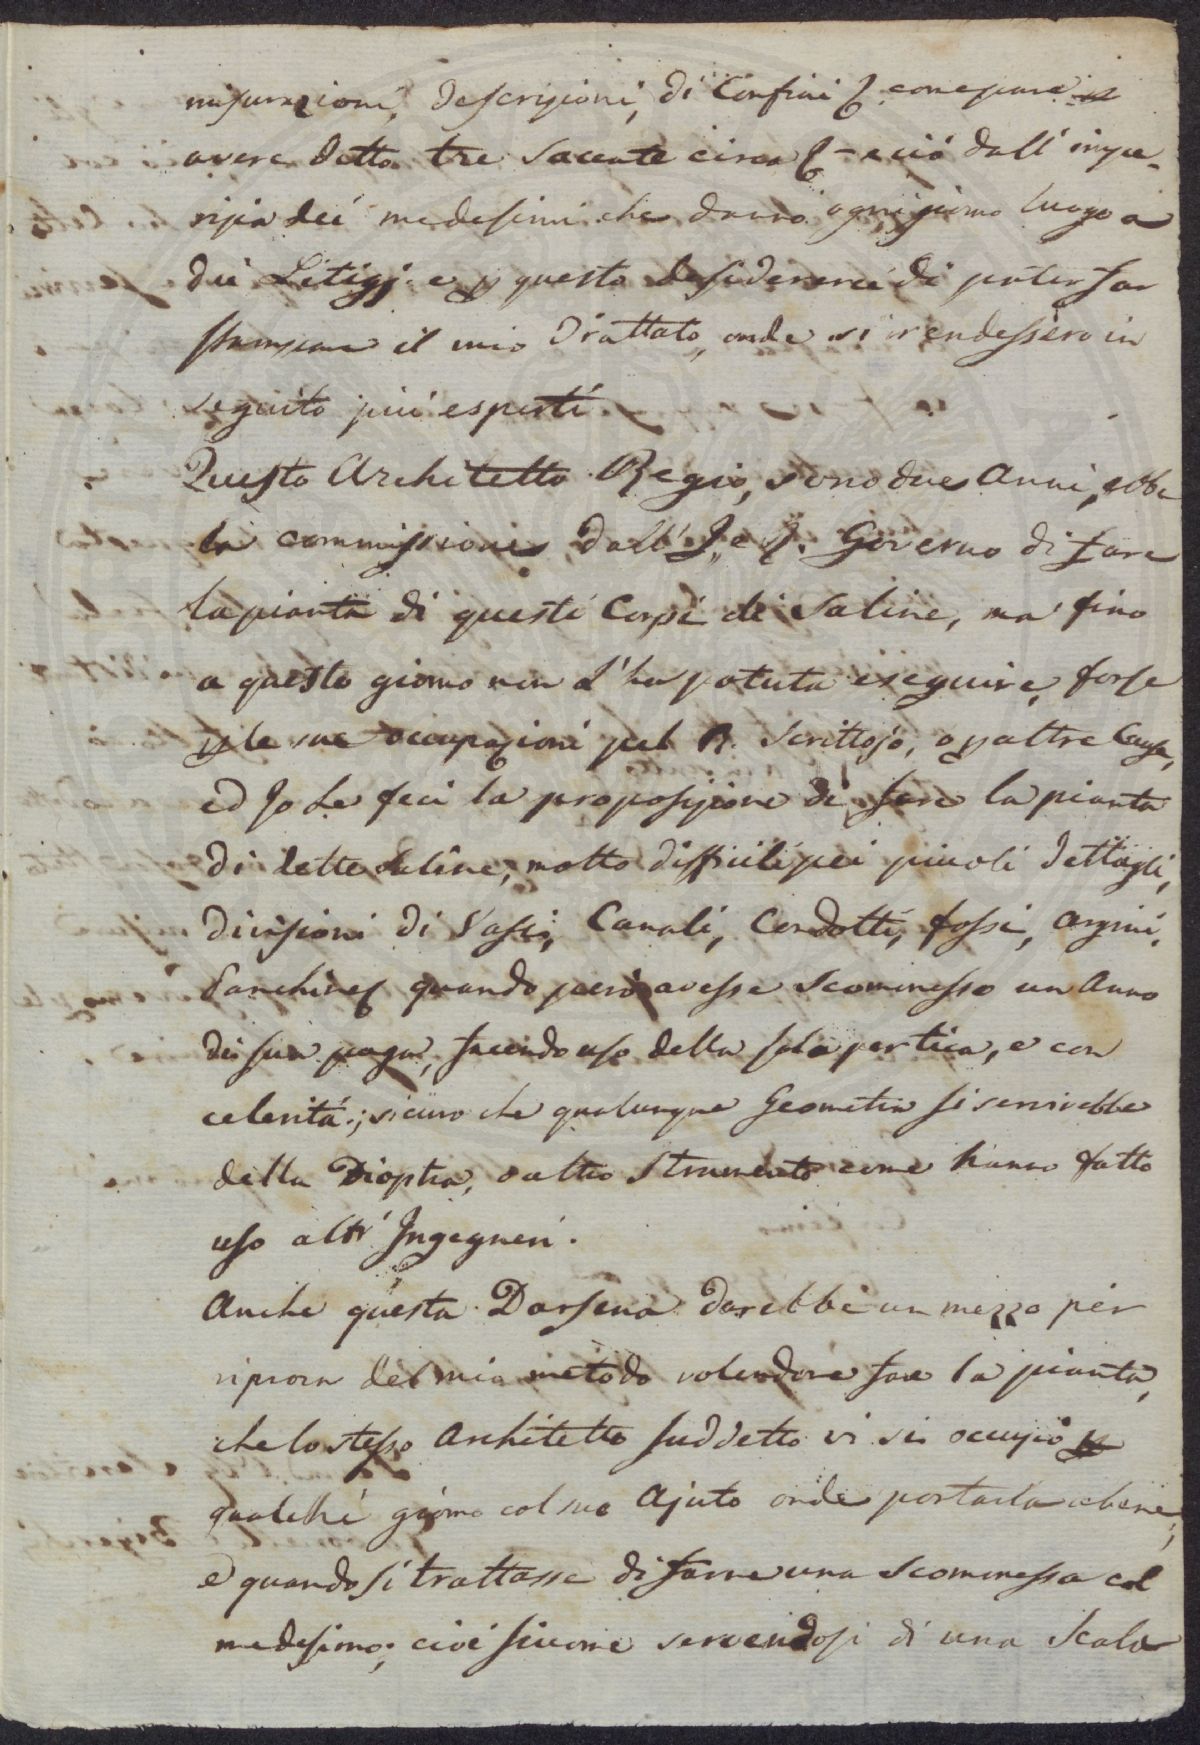 misurazioni, descrizioni, di Confini &. come pure p
avere detto tre Saccate circa &.- e ciò dall' impe-
rizia dei medesimi che danno ogni giorno luogo a
dei Litigj. e p questo desidererei di poter far
stampare il mio Trattato, onde si rendessero in
seguito più esperti.
Questo Architetto Regio, sono due Anni, ebbe
la commissione dall' I. e R. Governo di fare
la pianta di questi Corpi di Saline, ma fino
a questo giorno non l'ha potuta eseguire, forse
p le sue occupazioni pel R. Scrittojo, o p altre Cause,
ed Io Le feci la proposizione di fare la pianta
di dette Saline, molto difficili pei piccoli dettagli,
divisioni di Vassi, Canali, Condotti, fossi, argini,
Banchine & quando però avesse scommesso un Anno
di sua paga, facendo uso della sola pertica, e con
celerità; sicuro che qualunque Geometra si servirebbe
della Dioptra, o altro Strumento come hanno fatto
uso altri Ingegneri.
Anche questa Darsena darebbe un mezzo per
riprova del mio metodo volendone fare la pianta,
che lo stesso Architetto suddetto vi si occupò p
qualche giorno col suo Ajuto onde portarla a bene,
e quando si trattasse di farne una scommessa col
medesimo; cioè siccome servendosi di una Scala